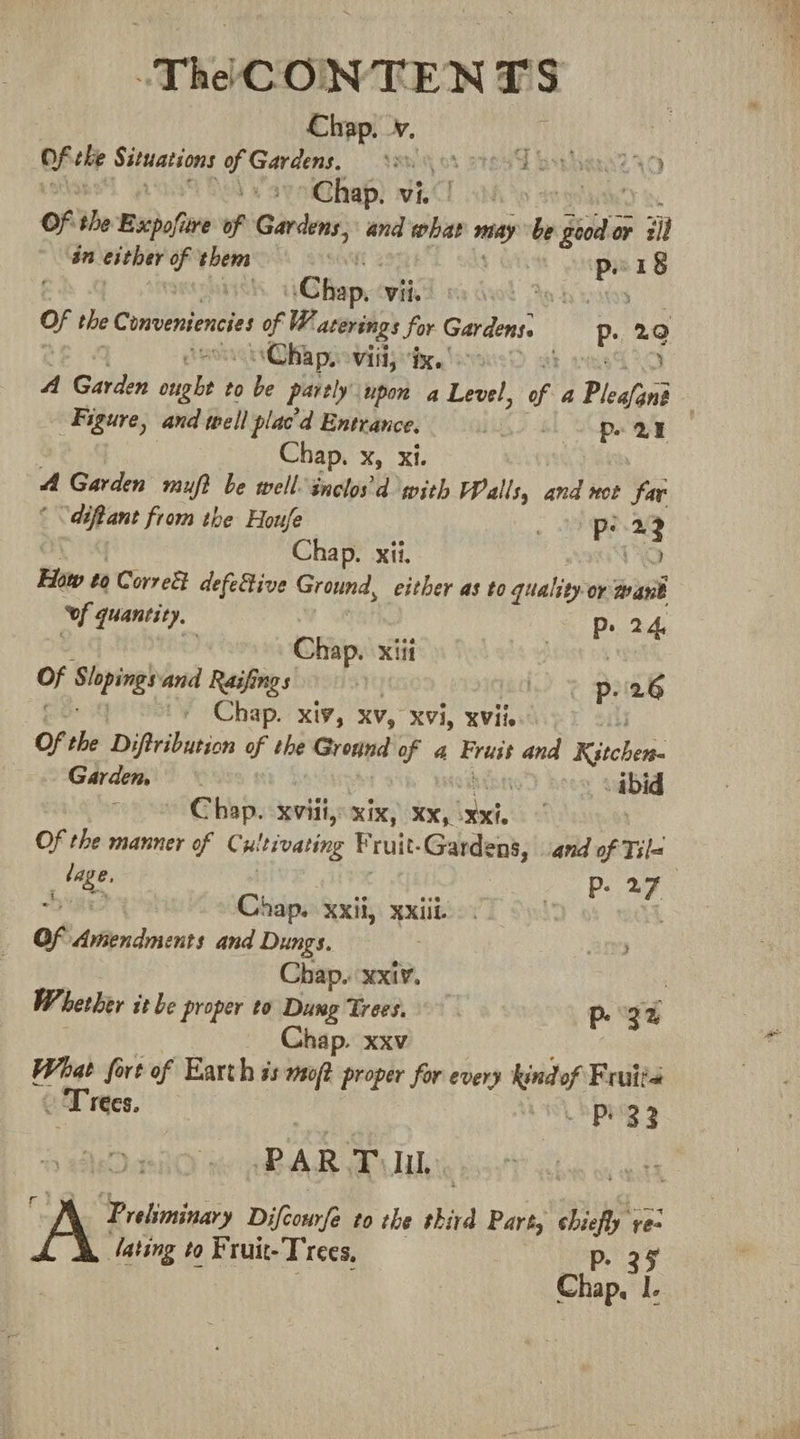 The CONTENTS
Chap. v.
Of the Situations of Gardens.
Chap. vi.
Of the Expoſure of Gardens, and what may be good or ill
in either of them p. 18
Chap. vii.
Of the Conveniencies of Waterings for Gardens. p. 20
Chap. viii, ix.
A Garden ought to be partly upon a Level, of a Pleaſant
Figure, and well plac'd Entrance. p. 21
Chap. x, xi.
A Garden muſt be well inclos'd with Walls, and not far
diſtant from the Houſe p. 23
Chap. xii.
How to Correct defective Ground, either as to quality or want
of quantity. p. 24
Chap. xiii
Of Slopings and Raiſings p. 26
Chap. xiv, xv, xvi, xvii.
Of the Diſtribution of the Ground of a Fruit and Kitchen-
Garden. ibid
Chap. xviii, xix, xx, xxi.
Of the manner of Cultivating Fruit-Gardens, and of Til-
lage. p. 27
Chap. xxii, xxiii.
Of Amendments and Dungs.
Chap. xxiv.
Whether it be proper to Dung Trees. p. 32
Chap. xxv
What ſort of Earth is moſt proper for every kind of Fruit-
Trees. p. 33
PART III.
A Preliminary Diſcourſe to the third Part, chiefly re-
lating to Fruit-Trees. p. 35
Chap. I.